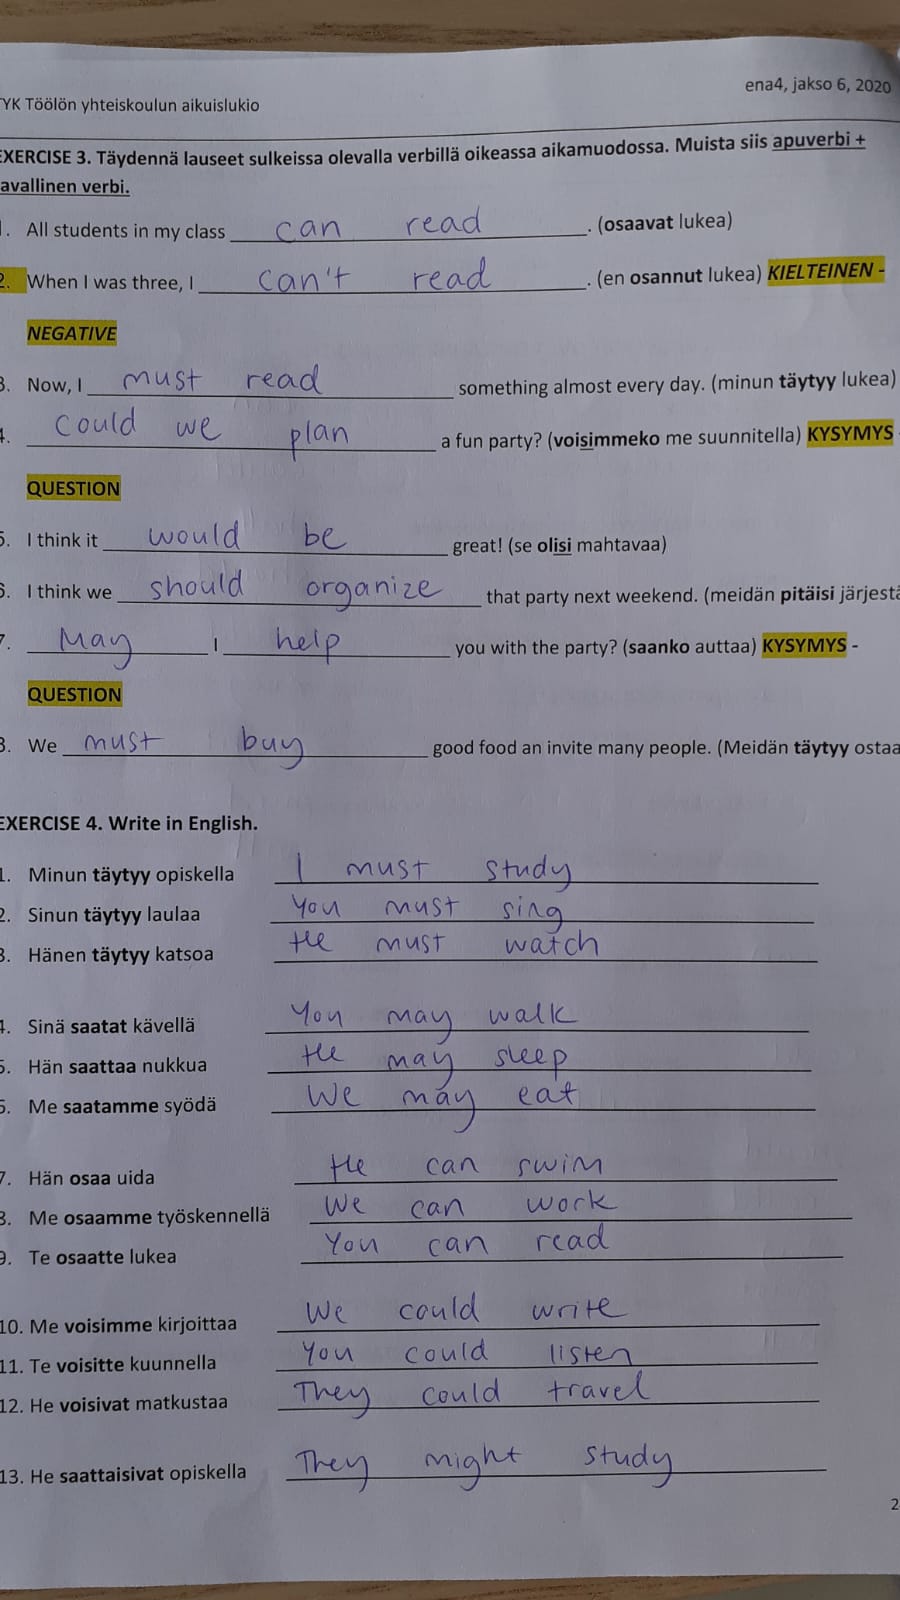 YK Töölön yhteiskoulun aikuislukio
ena4, jakso 6, 2020
EXERCISE 3. Täydennä lauseet sulkeissa olevalla verbillä oikeassa aikamuodossa. Muista siis apuverbi +
avallinen verbi.
1. All students in my class can read. (osaavat lukea)
2. When I was three, I can't read. (en osannut lukea) KIELTEINEN -
NEGATIVE
3. Now, I must read something almost every day. (minun täytyy lukea)
4. Could we plan a fun party? (voisimmeko me suunnitella) KYSYMYS -
QUESTION
5. I think it would be great! (se olisi mahtavaa)
6. I think we should organize that party next weekend. (meidän pitäisi järjestä
7. May I help you with the party? (saanko auttaa) KYSYMYS -
QUESTION
8. We must buy good food an invite many people. (Meidän täytyy ostaa
EXERCISE 4. Write in English.
1. Minun täytyy opiskella I must study
2. Sinun täytyy laulaa You must sing
3. Hänen täytyy katsoa He must watch
4. Sinä saatat kävellä You may walk
5. Hän saattaa nukkua He may sleep
6. Me saatamme syödä We may eat
7. Hän osaa uida He can swim
8. Me osaamme työskennellä We can work
9. Te osaatte lukea You can read
10. Me voisimme kirjoittaa We could write
11. Te voisitte kuunnella You could listen
12. He voisivat matkustaa They could travel
13. He saattaisivat opiskella They might study
2